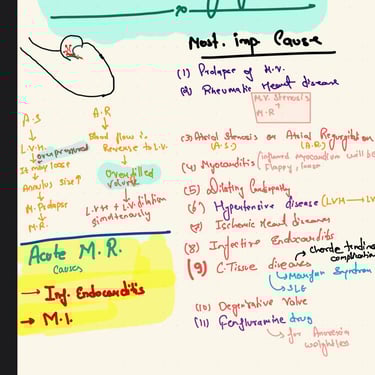 Most. imp. Cause
(1) Prolapse of M.V.
(2) Rheumatic Heart disease
M.V. Stenosis
M.R?
(3) Atrial Stenosis or Atrial Regurgitation
(A.S.) (A.R.)
(4) Myocarditis (inflamed myocardium will be
flappy, loose
(5) Dilating
(6) Hypertensive disease (LVH → LV
(7) Ischemic Heart diseases
(8) Infective Endocarditis
(9) C.Tissue diseases
Chordae
complication
Marfan Syndrom
SLE
(10) Degenrative Valve
(11) Fenfluramine drug
for Anorexia
weightloss
A.S
↓
L.V.H
↓ overpressured
It may loose
↓
Annulus size↑
↓
M.Prolapse
↓
M.R.
A.R
↓
Blood flow is
Reverse to L.V.
↓
Overfilled
volume
↓
L.V.H + L.V.dilation
simultenously
Acute M.R.
Causes
→ Inf. Endocarditis
→ M.I.